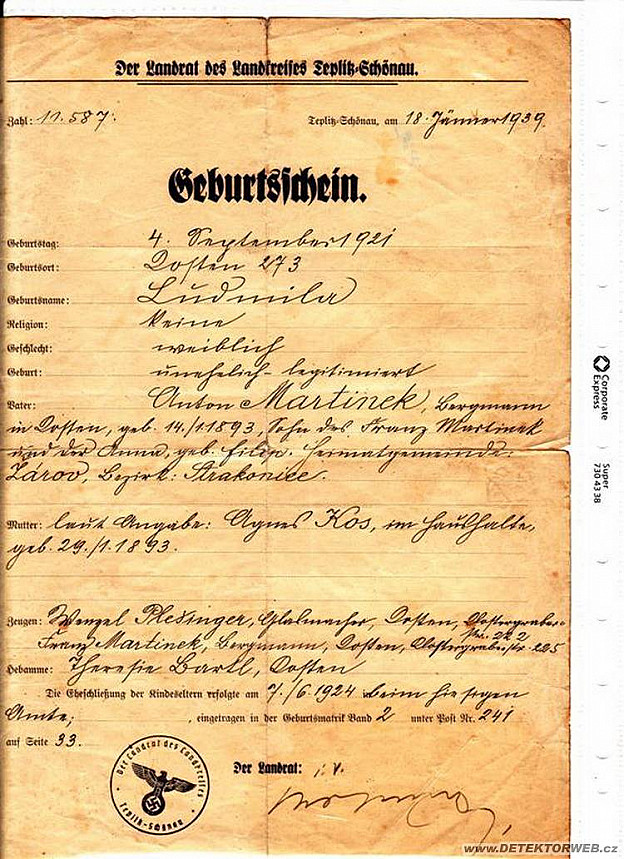 Der Landrat des Landkreises Teplitz-Schönau.
Zahl: 11.587. Teplitz-Schönau, am 18. Jänner 1939.
Geburtsschein.
Geburtstag: 4. September 1921
Geburtsort: Dosten 273
Geburtsname: Ludmila
Religion: keine
Geschlecht: weiblich
Geburt: unehelich - legitimiert
Vater: Anton Martinek, Bergmann
in Dosten, geb. 14./1.1893, Sohn des Franz Martinek
und der Anna, geb. Filip. Heimatgemeinde:
Zárov, Bezirk: Strakonice.
Mutter: laut Angabe: Agnes Kos, im Haushalte,
geb. 29./1.1893.
Zeugen: Wenzel Plesinger, Glasmacher, Dosten,
Nr. 222
Franz Martinek, Bergmann, Dosten, 225
Hebamme: Theresie Bartl, Dosten
Die Eheschließung der Kindeseltern erfolgte am 7./6.1924 beim hiesigen
Amte; , eingetragen in der Geburtsmatrik Band 2 unter Post Nr. 241
auf Seite 33.
Der Landrat: i.V.
Der Landrat des Landkreises
Teplitz-Schönau
Corporate
Express
Super
730 43 38
www.DETEKTORWEB.cz